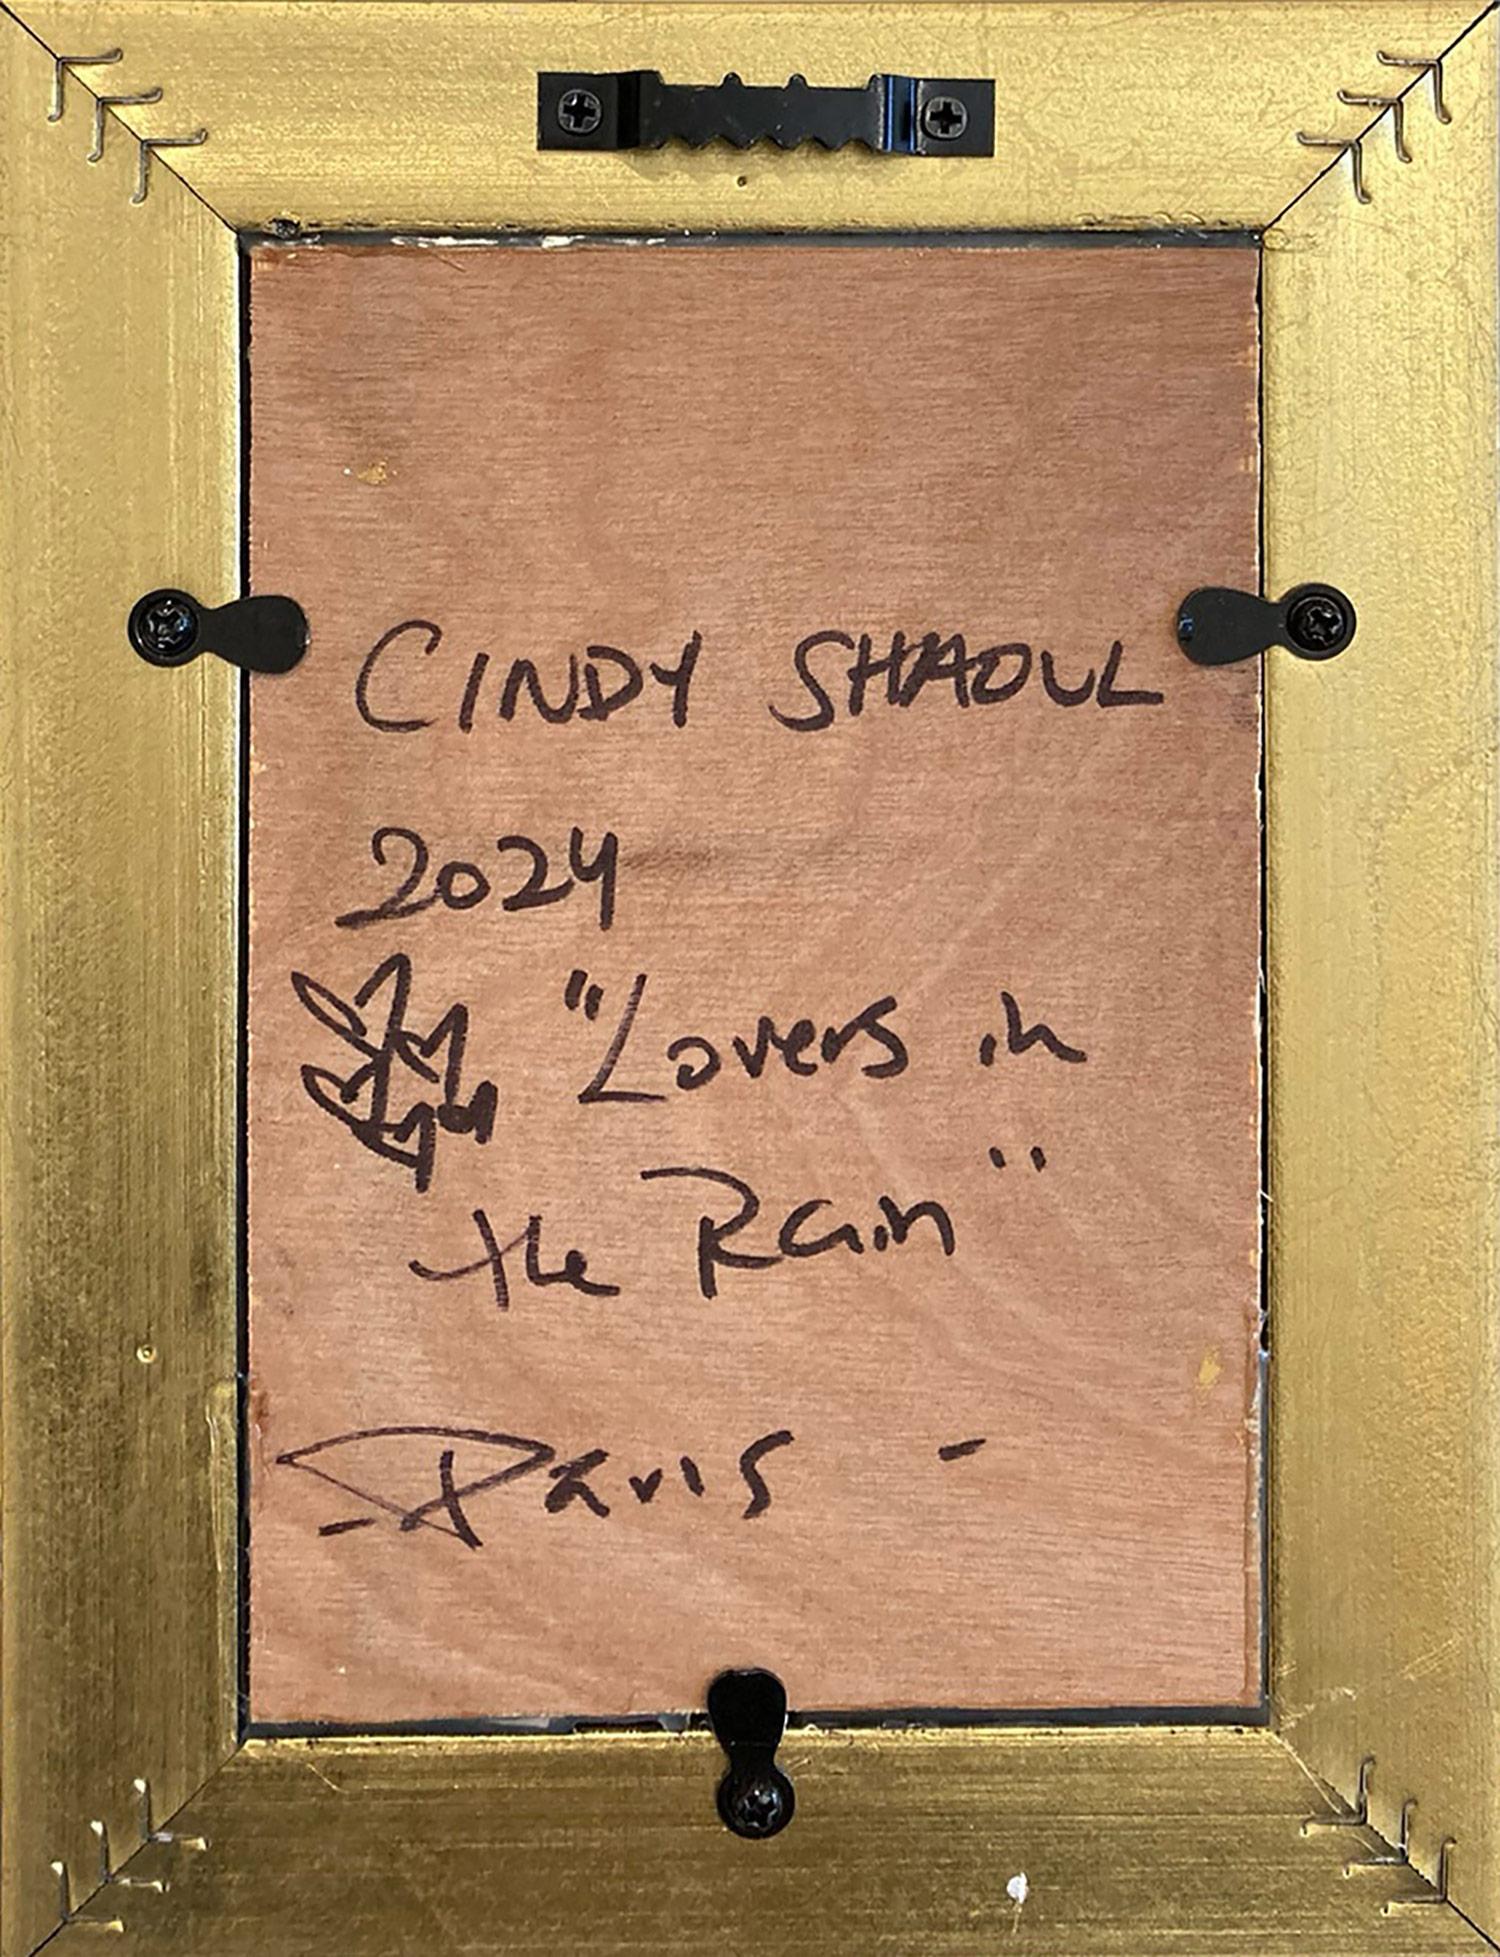 CINDY SHAOUL
2024
"Lovers in
the Rain"
Paris -